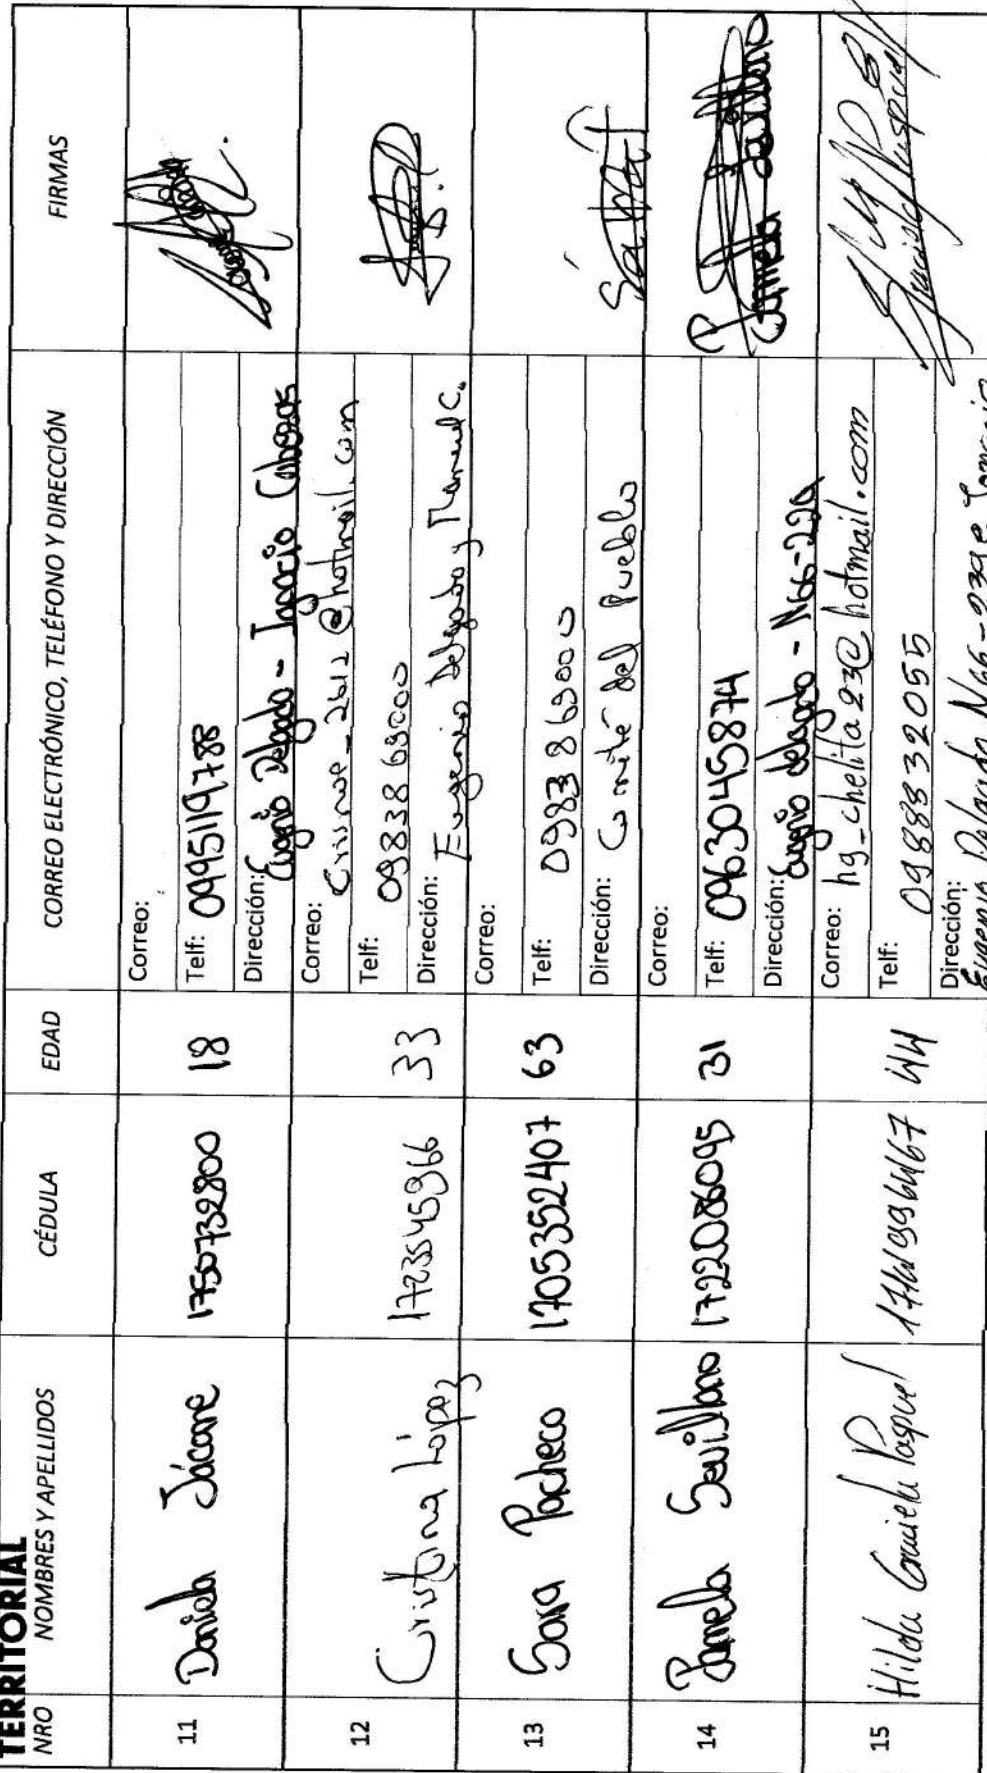 TERRITORIAL
NRO NOMBRES Y APELLIDOS CÉDULA EDAD CORREO ELECTRÓNICO, TELÉFONO Y DIRECCIÓN FIRMAS
11 Daniela Jácome 1750732800 18
Correo:
Telf: 0995119788
Dirección: Eugenio Delgado - Ignacio Cabezas
12 Cristina López 1723545966 33
Correo: @hotmail.com
Telf: 0983869300
Dirección: Eugenio Delgado y Manuel C.
13 Sara Pacheco 1705352407 63
Correo:
Telf: 0983869300
Dirección: Comité del Pueblo
Sara
14 Pamela Sevillano 1722086095 31
Correo:
Telf: 0963045874
Dirección: Eugenio delgado - N66-229
Pamela Sevillano
15 Hilda Graciela Pasquel 44
Correo: hg_chelita23@hotmail.com
Telf: 0988832055
Dirección:
Eugenio Delgado N66-239 e